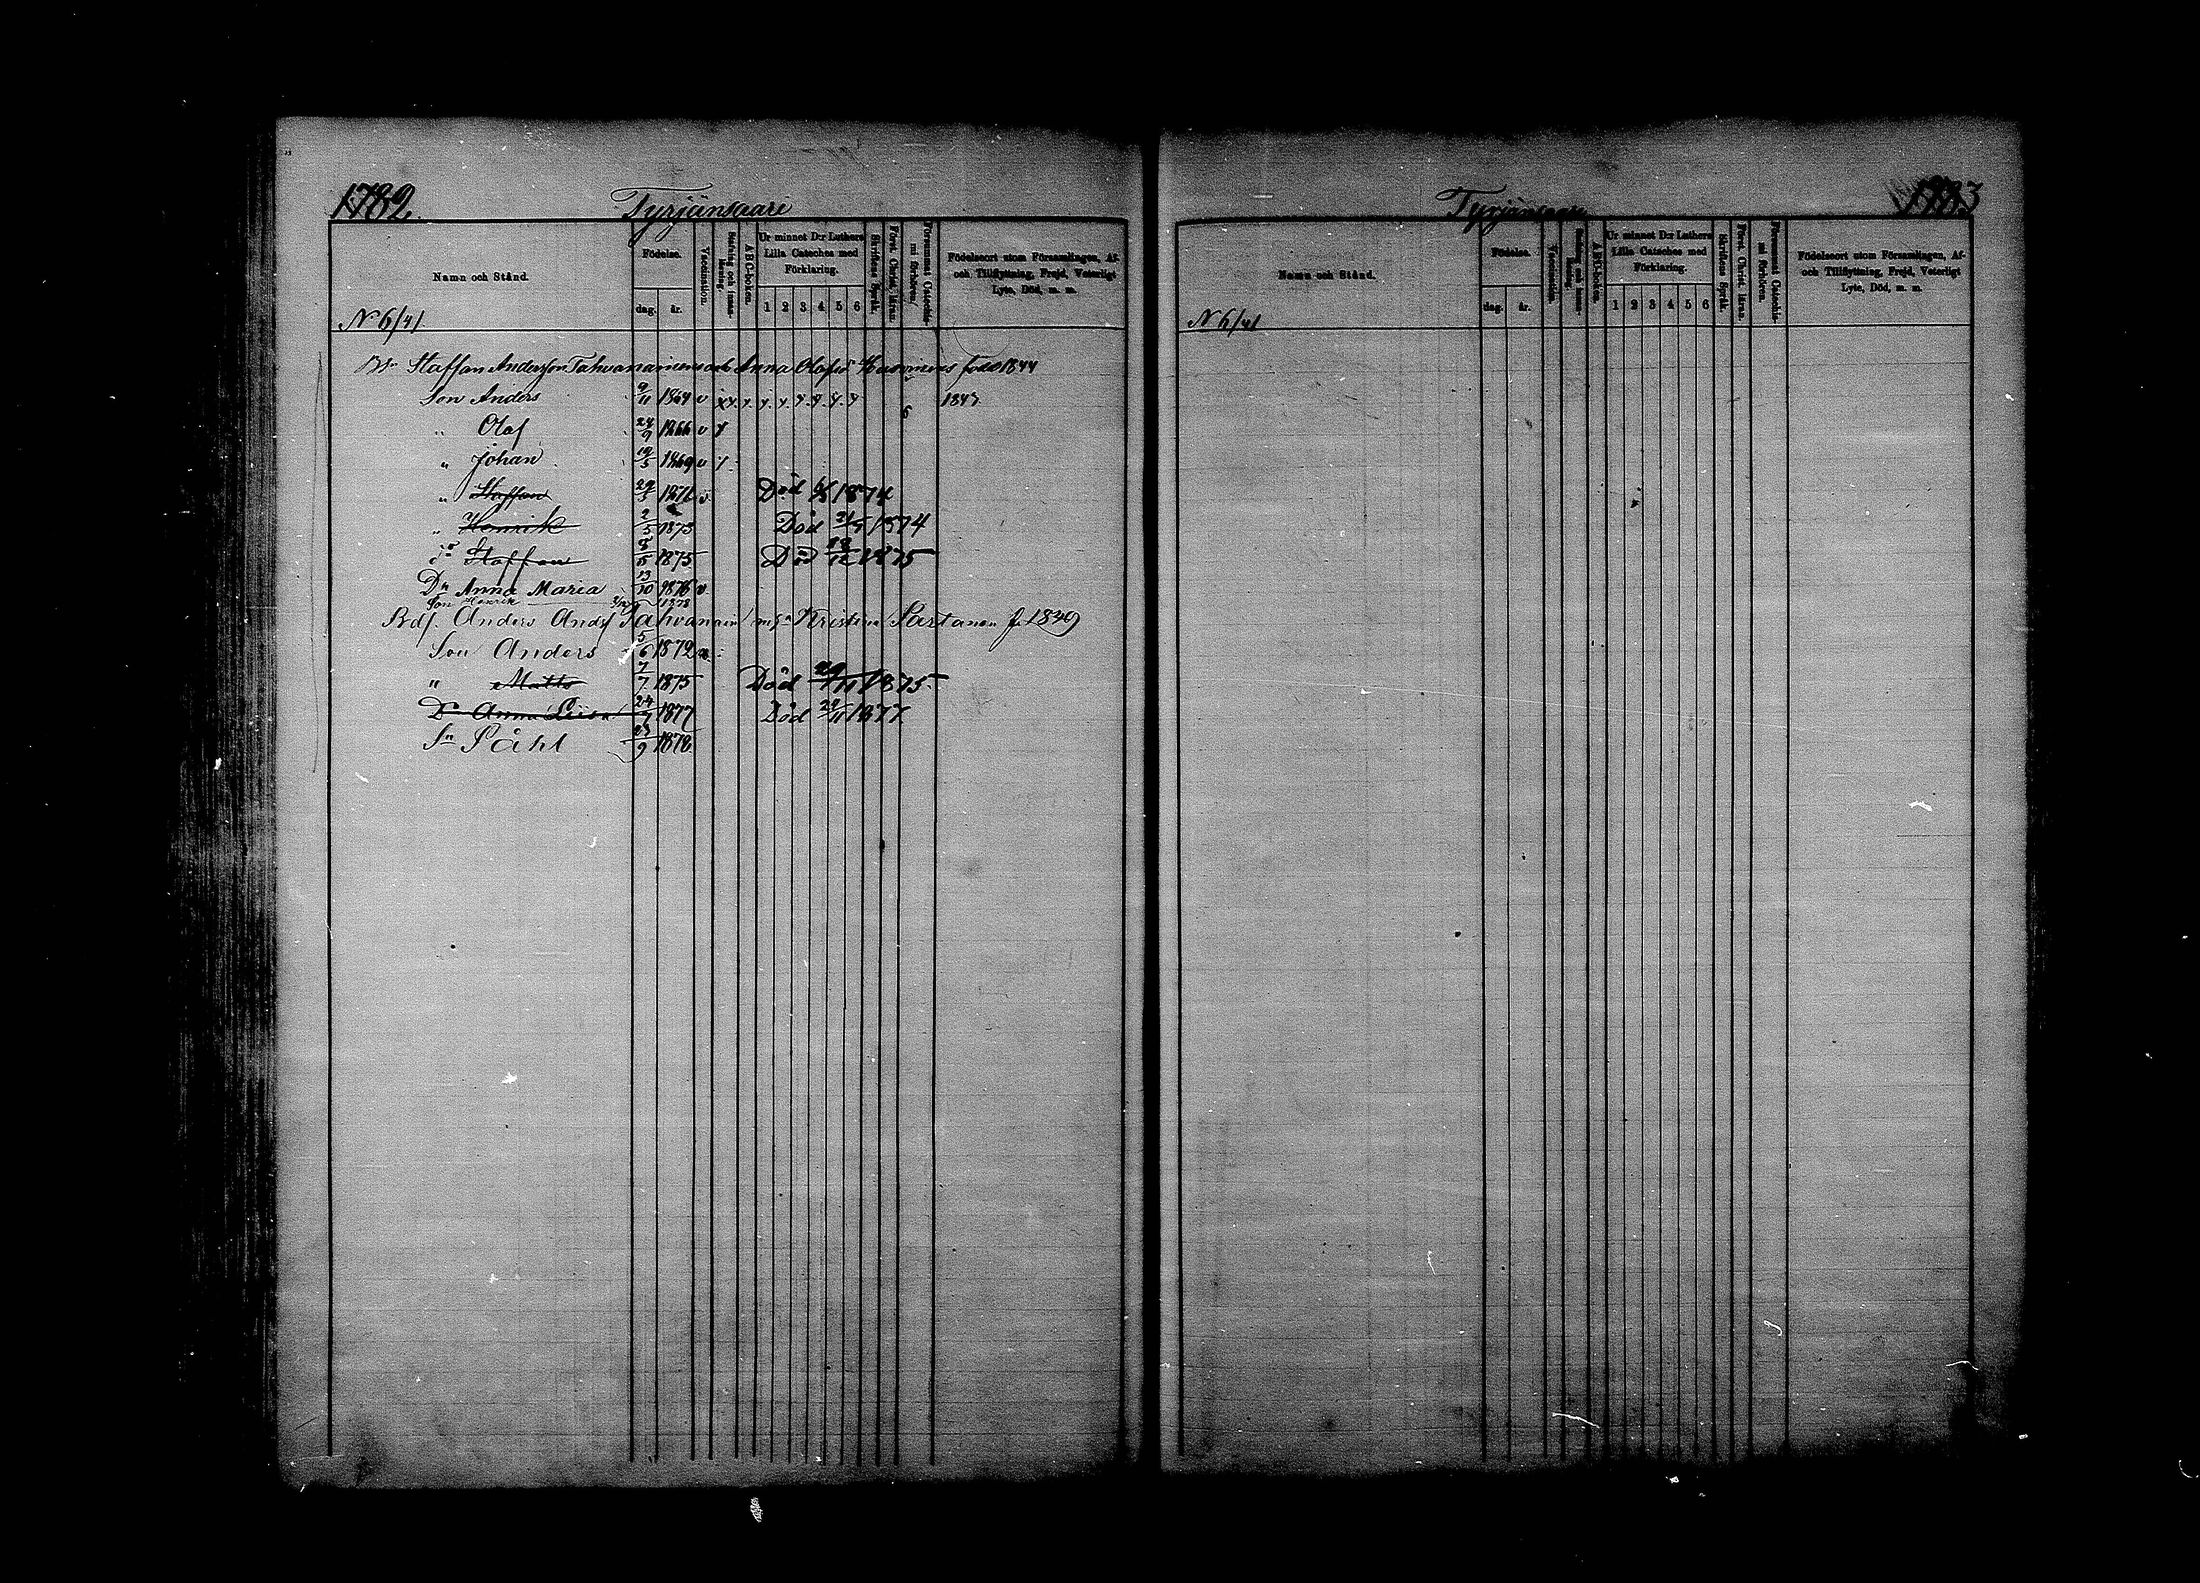 1782
Tyrjänsaari
Namn och Stånd.
Födelse.
dag.
år.
Vaccination.
ABC-boken.
Ur minnet D:r Luthers Lilla Cateches med Förklaring.
1 2 3 4 5 6
Skriftens Språk.
Först. Christ. läran.
Försummat Catechismi förhören.
Födelseort utom Församlingen, Af- och Tillflyttning, Frejd, Veterligt Lyte, Död, m. m.
N 6/41
Staffan Andersson Tahvanainens och Anna Olafsd Husoninens född 1844
Son Anders 9/11 1864 v 1847
" Olaf 24/9 1866 v
" Johan 19/5 1869 v
" Staffan 29/5 1871 v Död 1874
" Henrik 2/5 1873 Död 1874
Staffan 1875 Död 18/12 1875
Dr Anna Maria 13/10 1876 v
Son Henrik 1878
Bdf. Anders Andsf Tahvanain Kristina Partanen f. 1849
Son Anders 5/6 1872
" Matts 7/7 1875 Död 29/11 1875
Dr Anna Liisa 24/7 1877 Död 29/11 1877
Sn Påhl 23/9 1878
1783
Tyrjänsaari
Namn och Stånd.
Födelse.
dag.
år.
Vaccination.
ABC-boken.
Ur minnet D:r Luthers Lilla Cateches med Förklaring.
1 2 3 4 5 6
Skriftens Språk.
Först. Christ. läran.
Försummat Catechismi förhören.
Födelseort utom Församlingen, Af- och Tillflyttning, Frejd, Veterligt Lyte, Död, m. m.
N 6/41